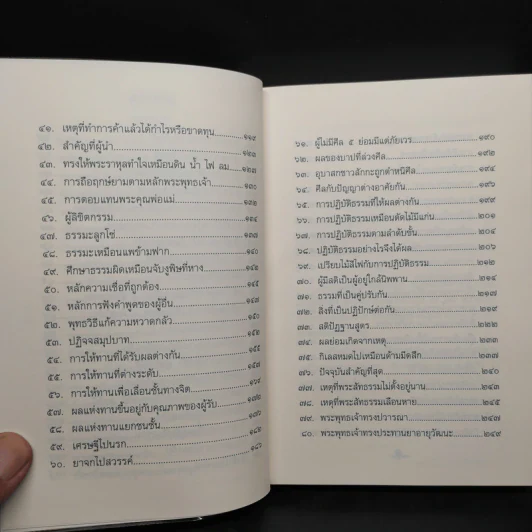 ๔๑. เหตุที่ทำการค้าแล้วได้กำไรหรือขาดทุน..........๑๑๙
๔๒. สำคัญที่ผู้นำ..........๑๒๓
๔๓. ทรงให้พระราหุลทำใจเหมือนดิน น้ำ ไฟ ลม..........๑๒๓
๔๔. การถือฤกษ์ยามตามหลักพระพุทธเจ้า..........๑๓๐
๔๕. การตอบแทนพระคุณพ่อแม่
๔๖. ผู้ลิขิตกรรม
๔๗. ธรรมะลูกโซ่
๔๘. ธรรมะเหมือนแพข้ามฟาก..........๑๔๐
๔๙. ศึกษาธรรมผิดเหมือนจับงูพิษที่หาง
๕๐. หลักความเชื่อที่ถูกต้อง
๕๑. หลักการฟังคำพูดของผู้อื่น
๕๒. พุทธวิธีแก้ความหวาดกลัว
๕๓. ปฏิจจสมุปบาท
๕๔. การให้ทานที่ได้รับผลต่างกัน
๕๕. การให้ทานที่ต่างระดับ
๕๖. การให้ทานเพื่อเลื่อนชั้นทางจิต
๕๗. ผลแห่งทานขึ้นอยู่กับคุณภาพของผู้รับ
๕๘. ผลแห่งทานแยกชนชั้น
๕๙. เศรษฐีไปนรก
๖๐. ยาจกไปสวรรค์
๖๑. ผู้ไม่มีศีล ๕ ย่อมมีแต่ภัยเวร..........๑๙๐
๖๒. ผลของบาปที่ล่วงศีล..........๑๙๒
๖๓. อุบาสกชาวสักกะถูกตำหนิศีล..........๑๙๔
๖๔. ศีลกับปัญญาต่างอาศัยกัน..........๑๙๖
๖๕. การปฏิบัติธรรมที่ให้ผลต่างกัน..........๑๙๙
๖๖. การปฏิบัติธรรมเหมือนตัดไม้มีแก่น..........๒๐๑
๖๗. การปฏิบัติธรรมตามลำดับขั้น..........๒๐๔
๖๘. ปฏิบัติธรรมอย่างไรจึงได้ผล..........๒๐๖
๖๙. เปรียบไม้สีไฟกับการปฏิบัติธรรม..........๒๑๒
๗๐. ผู้มีสติเป็นผู้อยู่ใกล้นิพพาน..........๒๑๔
๗๑. ธรรมที่เป็นคู่ปรับกัน..........๒๑๗
๗๒. สิ่งที่เป็นปฏิปักษ์ต่อกัน
๗๓. สติปัฏฐานสูตร..........๒๒๒
๗๔. ผลย่อมเกิดจากเหตุ
๗๕. กิเลสหมดไปเหมือนด้ามมีดสึก
๗๖. ปัจจุบันสำคัญที่สุด..........๒๔๐
๗๗. เหตุที่พระสัทธรรมไม่ตั้งอยู่นาน..........๒๔๓
๗๘. เหตุที่พระสัทธรรมเลือนหาย..........๒๔๕
๗๙. พระพุทธเจ้าทรงปวารณา..........๒๔๗
๘๐. พระพุทธเจ้าทรงประทานยาอายุวัฒนะ..........๒๔๙